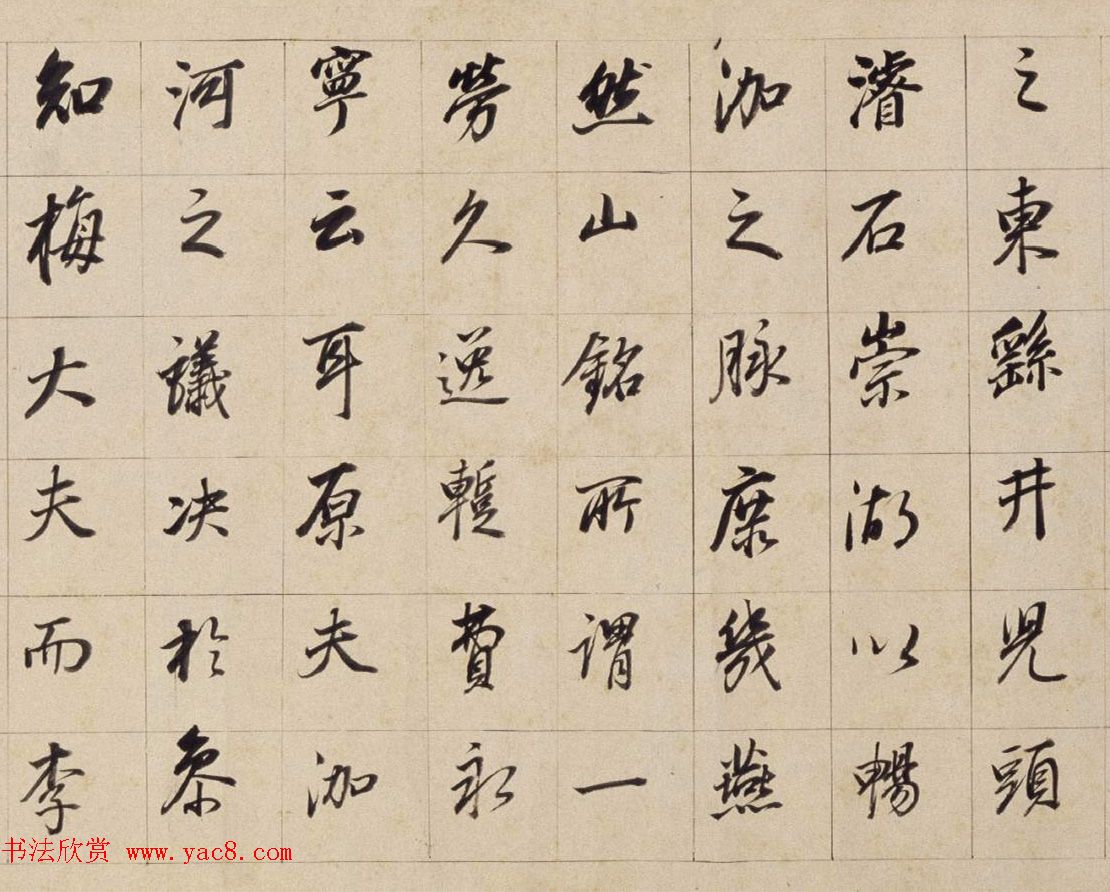 之東繇井兒頭
濬石崇湖以暢
泇之脉庶幾燕
然山銘所謂一
勞久逸蹔費永
寧云耳原夫泇
河之議决於叅
知梅大夫而李
书法欣赏 www.yac8.com